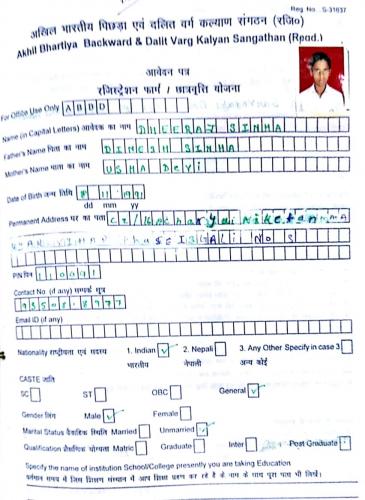 Reg. No. S-31637
अखिल भारतीय पिछड़ा एवं दलित वर्ग कल्याण संगठन (रजि०)
Akhil Bhartiya Backward & Dalit Varg Kalyan Sangathan (Regd.)
आवेदन पत्र
रजिस्ट्रेशन फार्म / छात्रवृत्ति योजना
For Office Use Only A B B D
Name (in Capital Letters) आवेदक का नाम DHEERAJ SINHA
Father's Name पिता का नाम DINESH SINHA
Mother's Name माता का नाम USHA DEVI
Date of Birth जन्म तिथि 11 1991
dd mm yy
Permanent Address घर का पता Niketan
Phase Gali No 5
PIN पिन 110091
Contact No. (if any) सम्पर्क सूत्र
Email ID (if any)
Nationality राष्ट्रीयता एवं सदस्य 1. Indian ✓ 2. Nepali 3. Any Other Specify in case 3
भारतीय नेपाली अन्य कोई
CASTE जाति
SC ST OBC General ✓
Gender लिंग Male ✓ Female
Marital Status वैवाहिक स्थिति Married Unmarried ✓
Qualification शैक्षणिक योग्यता Matric Graduate Inter Post Graduate
Specify the name of institution School/College presently you are taking Education
वर्तमान समय में जिस शिक्षण संस्थान में आप शिक्षा ग्रहण कर रहे हैं के नाम के साथ पूरा पता भी लिखें।